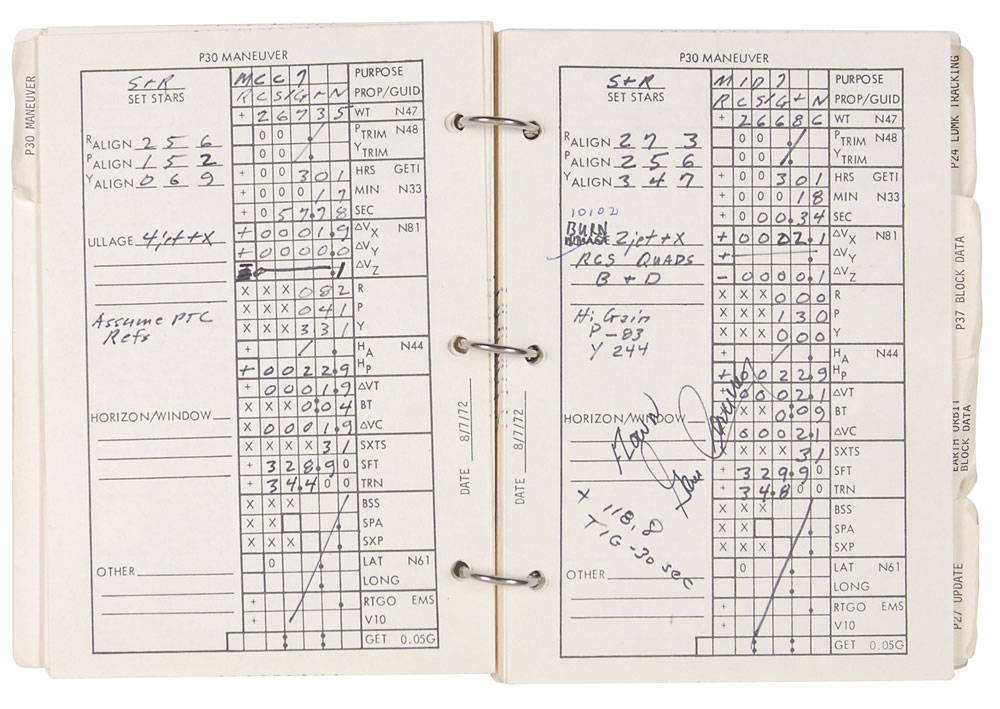 P30 MANEUVER
P30 MANEUVER
S+R
SET STARS
M C C 7 PURPOSE
R C S / G + N PROP/GUID
+ 2 6 7 3 5 WT N47
0 0 P TRIM N48
0 0 Y TRIM
R ALIGN 2 5 6
P ALIGN 1 5 2
Y ALIGN 0 6 9
+ 0 0 3 0 1 HRS GETI
+ 0 0 0 1 7 MIN N33
+ 0 5 7.7 8 SEC
ULLAGE 4 jet +X
+ 0 0 0 1.9 ΔVX N81
+ 0 0 0 0.0 ΔVY
.1 ΔVZ
X X X 0 8 2 R
X X X 0 4 1 P
X X X 3 3 1 Y
Assume PTC
Refs
+ HA N44
+ 0 0 2 2.9 HP
+ 0 0 0 1.9 ΔVT
X X X 0:0 4 BT
+ 0 0 0 1.9 ΔVC
HORIZON/WINDOW
X X X X 3 1 SXTS
+ 3 2 8.9 0 SFT
+ 3 4.4 0 0 TRN
X X X BSS
X X SPA
X X X SXP
OTHER
0 LAT N61
LONG
+ RTGO EMS
+ V10
GET 0.05G
DATE 8/7/72
P30 MANEUVER
S+R
SET STARS
M I D 7 PURPOSE
R C S / G + N PROP/GUID
+ 2 6 6 8 6 WT N47
0 0 P TRIM N48
0 0 Y TRIM
R ALIGN 2 7 3
P ALIGN 2 5 6
Y ALIGN 3 4 7
+ 0 0 3 0 1 HRS GETI
+ 0 0 0 1 8 MIN N33
+ 0 0 0.3 4 SEC
10102
BURN 2 jet +X
RCS QUADS
B + D
+ 0 0 0 2.1 ΔVX N81
+ ΔVY
- 0 0 0 0.1 ΔVZ
X X X 0 0 0 R
X X X 1 3 0 P
X X X 0 0 0 Y
Hi Gain
P -83
Y 244
+ HA N44
+ 0 0 2 2.9 HP
+ 0 0 0 2.1 ΔVT
X X 0:0 9 BT
0 0 0 2.1 ΔVC
HORIZON/WINDOW
Flown
Gene Cernan
X X X 3 1 SXTS
+ 3 2 9.9 0 SFT
+ 3 4.8 0 0 TRN
X 118.8
TIG -30 sec
X X X BSS
X X SPA
X X X SXP
OTHER
0 LAT N61
LONG
+ RTGO EMS
+ V10
GET 0.05G
DATE 8/7/72
P24 LDMK TRACKING
P37 BLOCK DATA
EARTH ORBIT
BLOCK DATA
P27 UPDATE